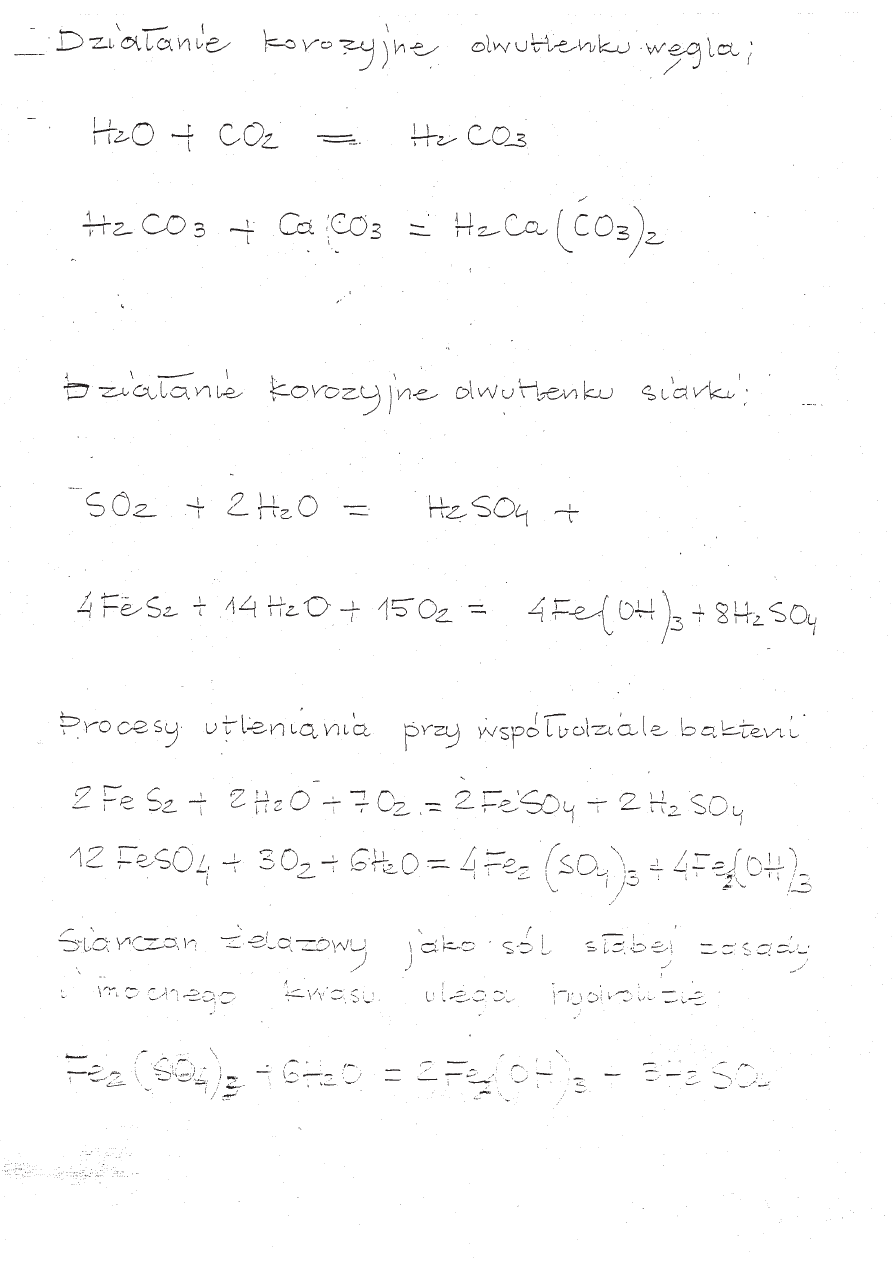 Działanie korozyjne dwutlenku węgla;
H2O + CO2 = H2CO3
H2CO3 + CaCO3 = H2Ca(CO3)2
Działanie korozyjne dwutlenku siarki;
SO2 + 2H2O = H2SO4 +
4FeS2 + 14H2O + 15O2 = 4Fe(OH)3 + 8H2SO4
Procesy utleniania przy współudziale bakterii
2FeS2 + 2H2O + 7O2 = 2FeSO4 + 2H2SO4
12FeSO4 + 3O2 + 6H2O = 4Fe2(SO4)3 + 4Fe2(OH)3
Siarczan żelazowy jako sól słabej zasady
i mocnego kwasu ulega hydrolizie
Fe2(SO4)3 + 6H2O = 2Fe2(OH)3 + 3H2SO4